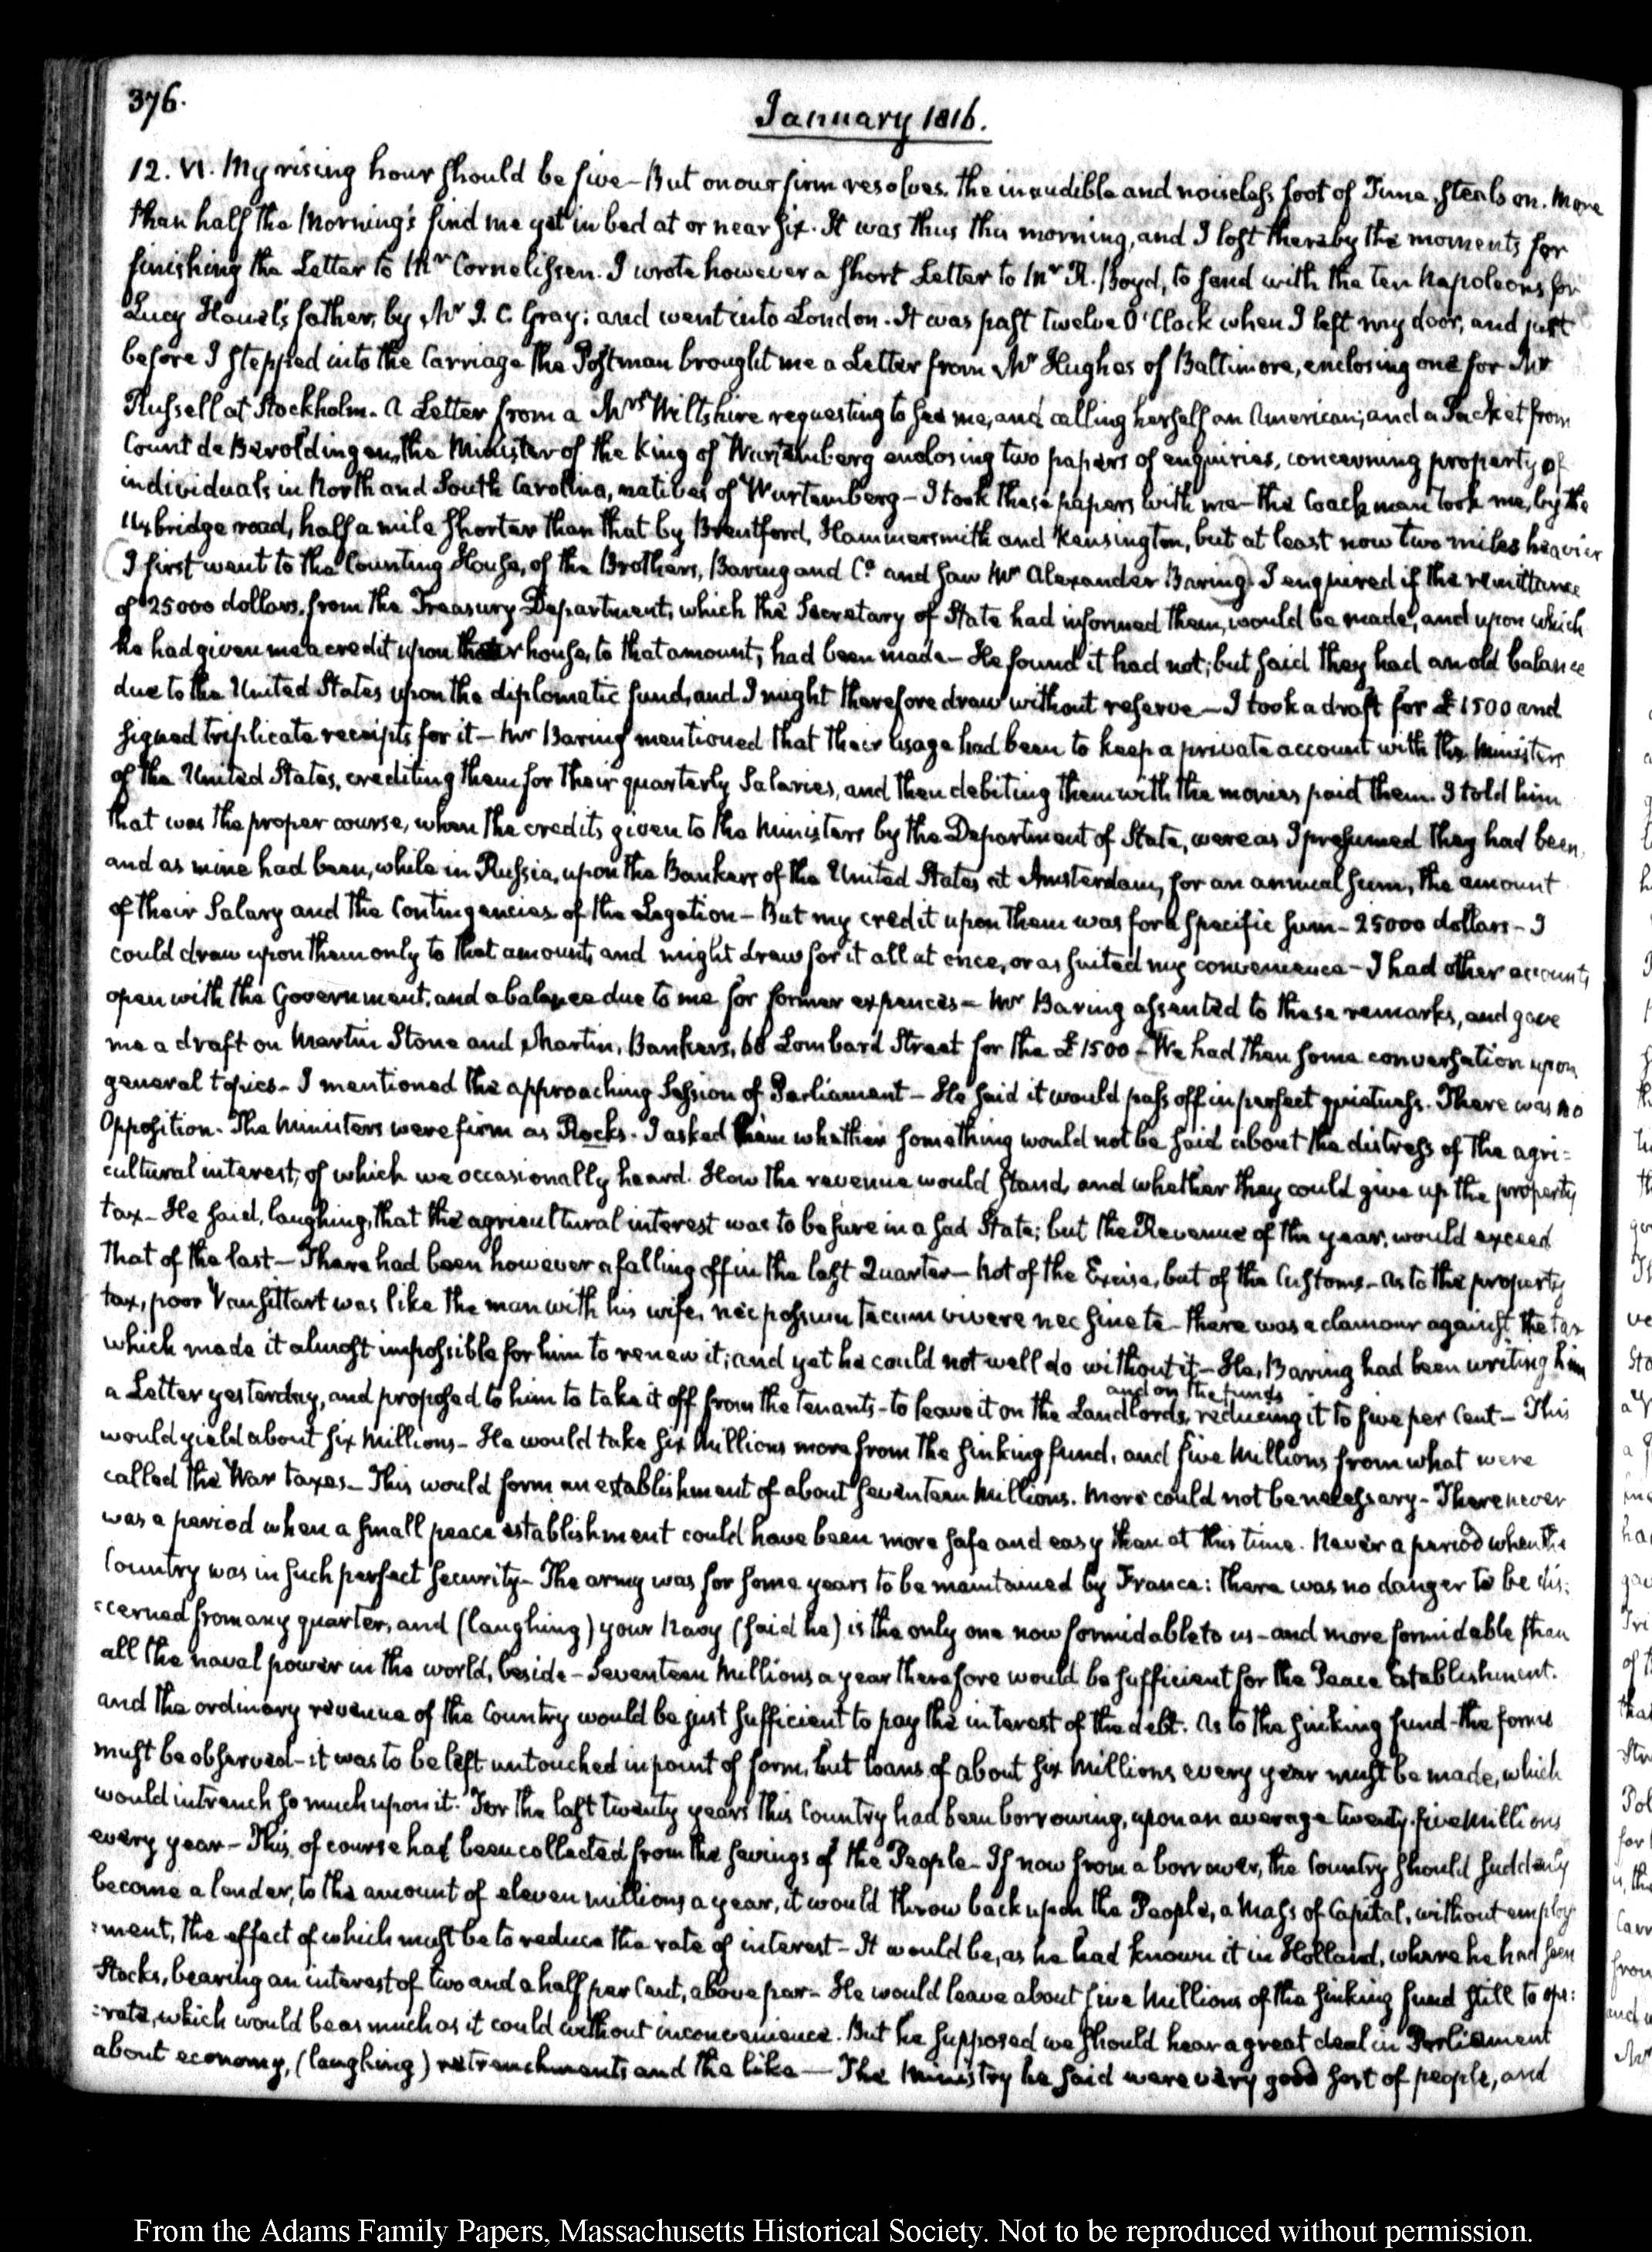 376.
January 1816.
12. VI. My rising hour should be five – But on our firm resolves, the inaudible and noiseless foot of Time, steals on. More
than half the Morning's find me yet in bed at or near six. It was thus this morning, and I lost thereby the moments for
finishing the Letter to Mr Cornelissen. I wrote however a short Letter to Mr R. Boyd, to send with the ten Napoleons for
Lucy Houel's father, by Mr J. C. Gray; and went into London. It was past twelve O'Clock when I left my door, and just
before I stepped into the Carriage the Postman brought me a Letter from Mr Hughes of Baltimore, enclosing one for Mr
Russell at Stockholm. A Letter from a Mrs Wiltshire requesting to see me, and calling herself an American; and a Packet from
Count de Beroldingen, the Minister of the King of Wurtemberg enclosing two papers of enquiries, concerning property of
individuals in North and South Carolina, natives of Wurtemberg – I took these papers with me – the Coachman took me, by the
Uxbridge road, half a mile shorter than that by Brentford, Hammersmith and Kensington, but at least now two miles heavier
I first went to the Counting House, of the Brothers, Baring and Co. and saw Mr Alexander Baring. I enquired if the remittance
of 25000 dollars, from the Treasury Department, which the Secretary of State had informed them, would be made, and upon which
he had given me a credit upon their house, to that amount, had been made – He found it had not; but said they had an old balance
due to the United States upon the diplomatic fund, and I might therefore draw without reserve – I took a draft for £1500 and
signed triplicate receipts for it – Mr Baring mentioned that their usage had been to keep a private account with the Ministers
of the United States, crediting them for their quarterly Salaries, and then debiting them with the monies paid them. I told him
that was the proper course, when the credits given to the Ministers by the Department of State, were as I presumed they had been,
and as mine had been, while in Russia, upon the Bankers of the United States at Amsterdam, for an annual sum, the amount
of their Salary and the Contingencies of the Legation – But my credit upon them was for a specific sum – 25000 dollars – I
could draw upon them only to that amount, and might draw for it all at once, or as suited my convenience – I had other accounts
open with the Government, and a balance due to me for former expences – Mr Baring assented to these remarks, and gave
me a draft on Martin Stone and Martin, Bankers, 68 Lombard Street for the £1500 – We had then some conversation upon
general topics – I mentioned the approaching Session of Parliament – He said it would pass off in perfect quietness. There was no
Opposition. The Ministers were firm as Rocks. I asked him whether something would not be said about the distress of the agri=
cultural interest, of which we occasionally heard. How the revenue would stand, and whether they could give up the property
tax – He said, laughing, that the agricultural interest was to be sure in a sad State; but the Revenue of the year, would exceed
that of the last – There had been however a falling off in the last Quarter – not of the Excise, but of the Customs – As to the property
tax, poor Vansittart was like the man with his wife, nec possum tecum vivere nec sine te – there was a clamour against the tax
which made it almost impossible for him to renew it; and yet he could not well do without it – He, Baring had been writing him
a Letter yesterday, and proposed to him to take it off from the tenants – to leave it on the Landlords, and on the funds reducing it to five per Cent – This
would yield about six Millions – He would take six Millions more from the sinking fund, and five Millions from what were
called the War taxes – This would form an establishment of about seventeen Millions. More could not be necessary – There never
was a period when a small peace establishment could have been more safe and easy than at this time. Never a period when the
Country was in such perfect security – The army was for some years to be maintained by France: there was no danger to be dis=
=cerned from any quarter, and (laughing) your Navy (said he) is the only one now formidable to us – and more formidable than
all the naval power in the world, beside – Seventeen Millions a year therefore would be sufficient for the Peace Establishment.
and the ordinary revenue of the Country would be just sufficient to pay the interest of the debt. As to the sinking fund – the forms
must be observed – it was to be left untouched in point of form, but loans of about six Millions every year must be made, which
would intrench so much upon it. For the last twenty years this Country had been borrowing, upon an average twenty-five Millions
every year – This, of course had been collected from the savings of the People – If now from a borrower, the Country should suddenly
become a lender, to the amount of eleven millions a year, it would throw back upon the People, a Mass of Capital, without employ=
=ment, the effect of which must be to reduce the rate of interest – It would be, as he had known it in Holland, where he had seen
Stocks, bearing an interest of two and a half per Cent, above par – He would leave about five Millions of the sinking fund still to ope=
=rate, which would be as much as it could without inconvenience. But he supposed we should hear a great deal in Parliament
about economy, (laughing) retrenchments and the like — The Ministry he said were very good sort of people, and
From the Adams Family Papers, Massachusetts Historical Society. Not to be reproduced without permission.